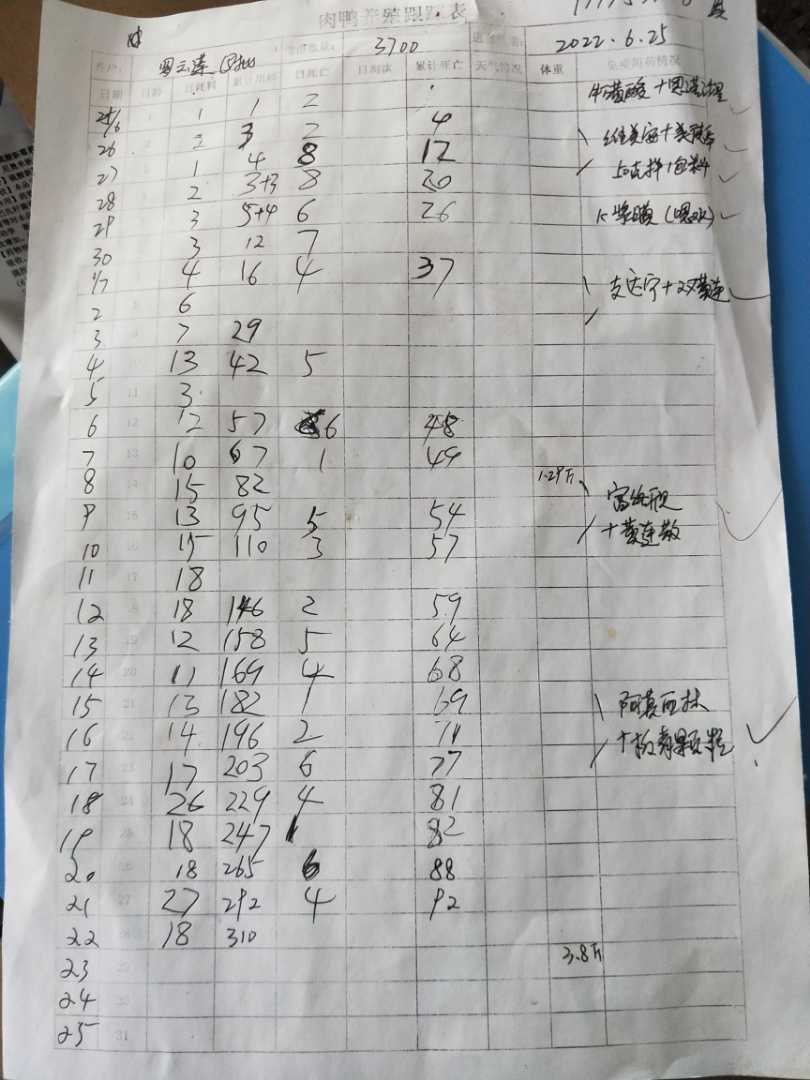 肉鸭养殖跟踪表
客户: 3700 2022.6.25
日期 日龄 日耗料 累计用料 日死亡 日淘汰 累计死亡 天气情况 体重 免疫用药情况
25/6 1 1 2
26 2 3 2 4
27 1 4 8 12
28 2 3+3 8 20
29 3 5+4 6 26
30 3 12 7
1/7 4 16 4 37
2 6
3 7 29
4 13 42 5
5 11 3
6 12 12 57 6 48
7 13 10 67 1 49
8 14 15 82 1.29斤
9 15 13 95 5 54
10 16 15 110 3 57 +黄连散
11 17 18
12 18 18 146 2 59
13 19 12 158 5 64
14 20 11 169 4 68
15 21 13 182 1 69 阿莫西林
16 14 196 2 71 +板青颗粒
17 23 17 203 6 77
18 24 26 229 4 81
19 25 18 247 1 82
20 26 18 265 6 88
21 27 27 292 4 92
22 28 18 310
23 29 3.8斤
24 30
25 31